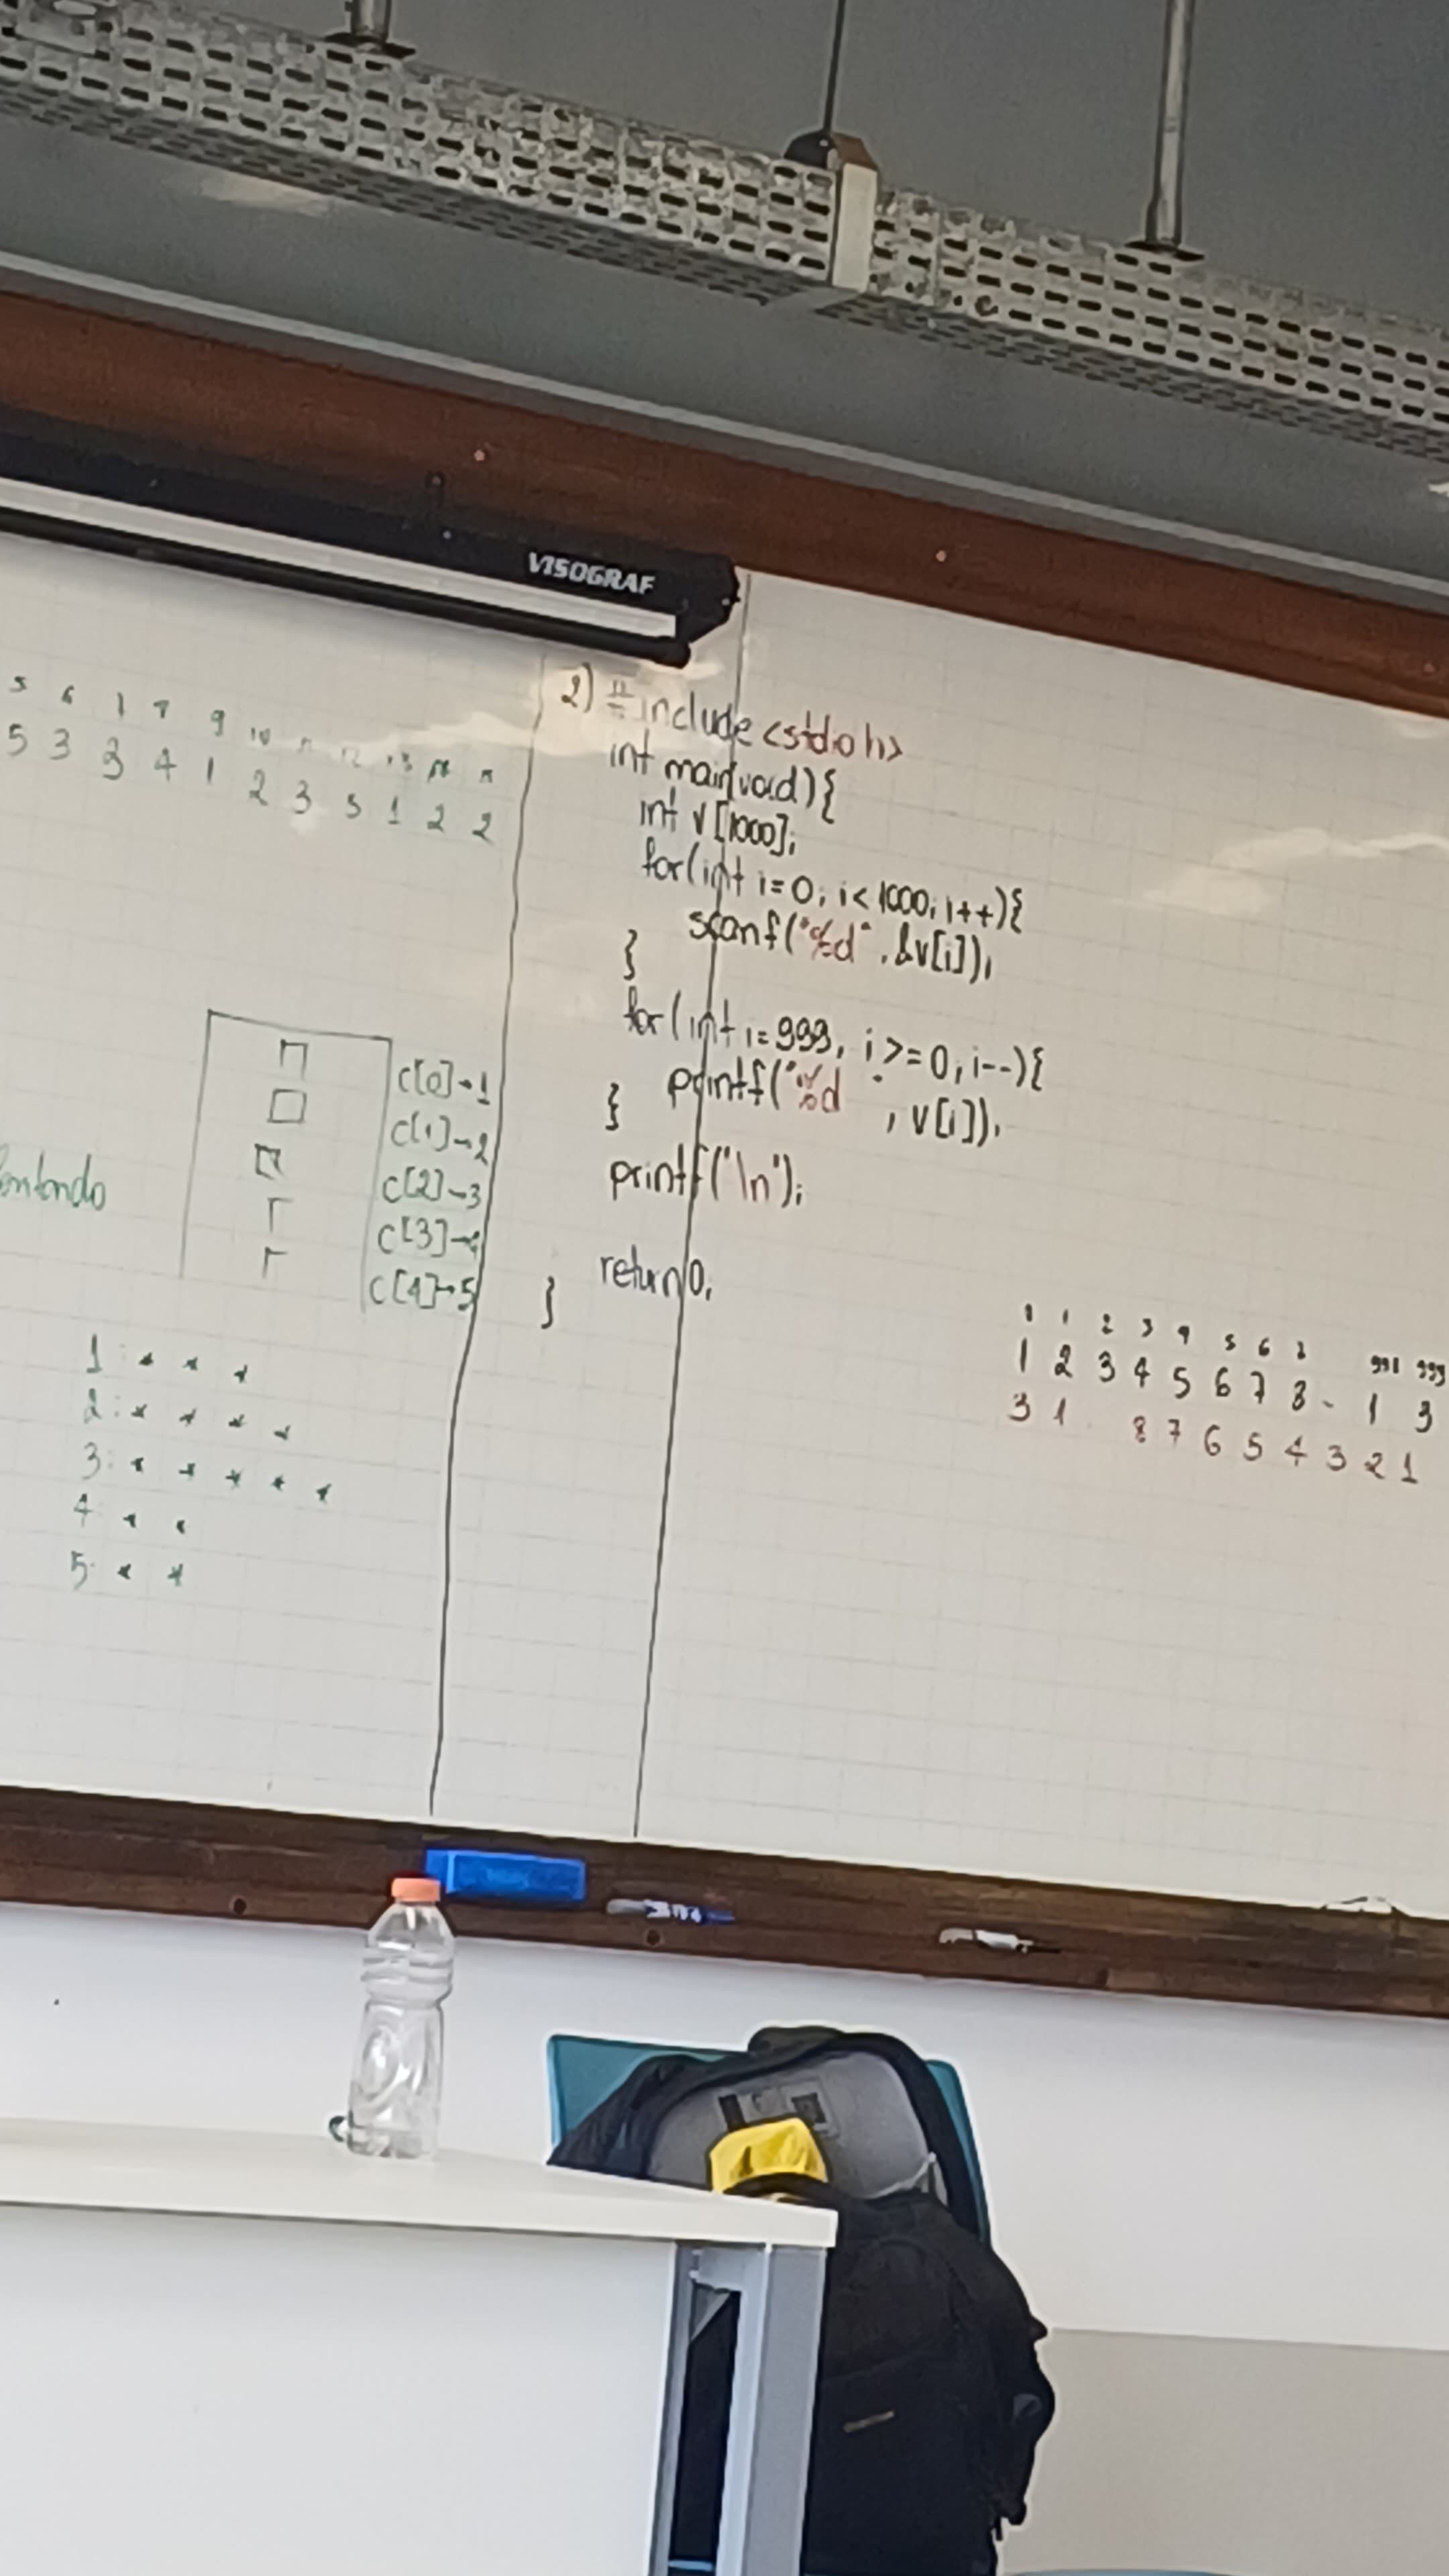 VISOGRAF
5 6 7 8 9 10 11 12 13 14 15
5 3 3 4 1 2 3 5 1 2 2
c[0]→1
c[1]→2
c[2]→3
c[3]→4
c[4]→5
1: * * *
2: * * * *
3: * * * * *
4: * *
5: * *
2) #include <stdio.h>
int main(void){
int v[1000];
for(int i=0; i<1000; i++){
scanf("%d", &v[i]);
}
for(int i=999; i>=0; i--){
printf("%d ", v[i]);
}
printf("\n");
return 0;
}
0 1 2 3 4 5 6 7 998 999
1 2 3 4 5 6 7 8 - 1 3
3 1 8 7 6 5 4 3 2 1